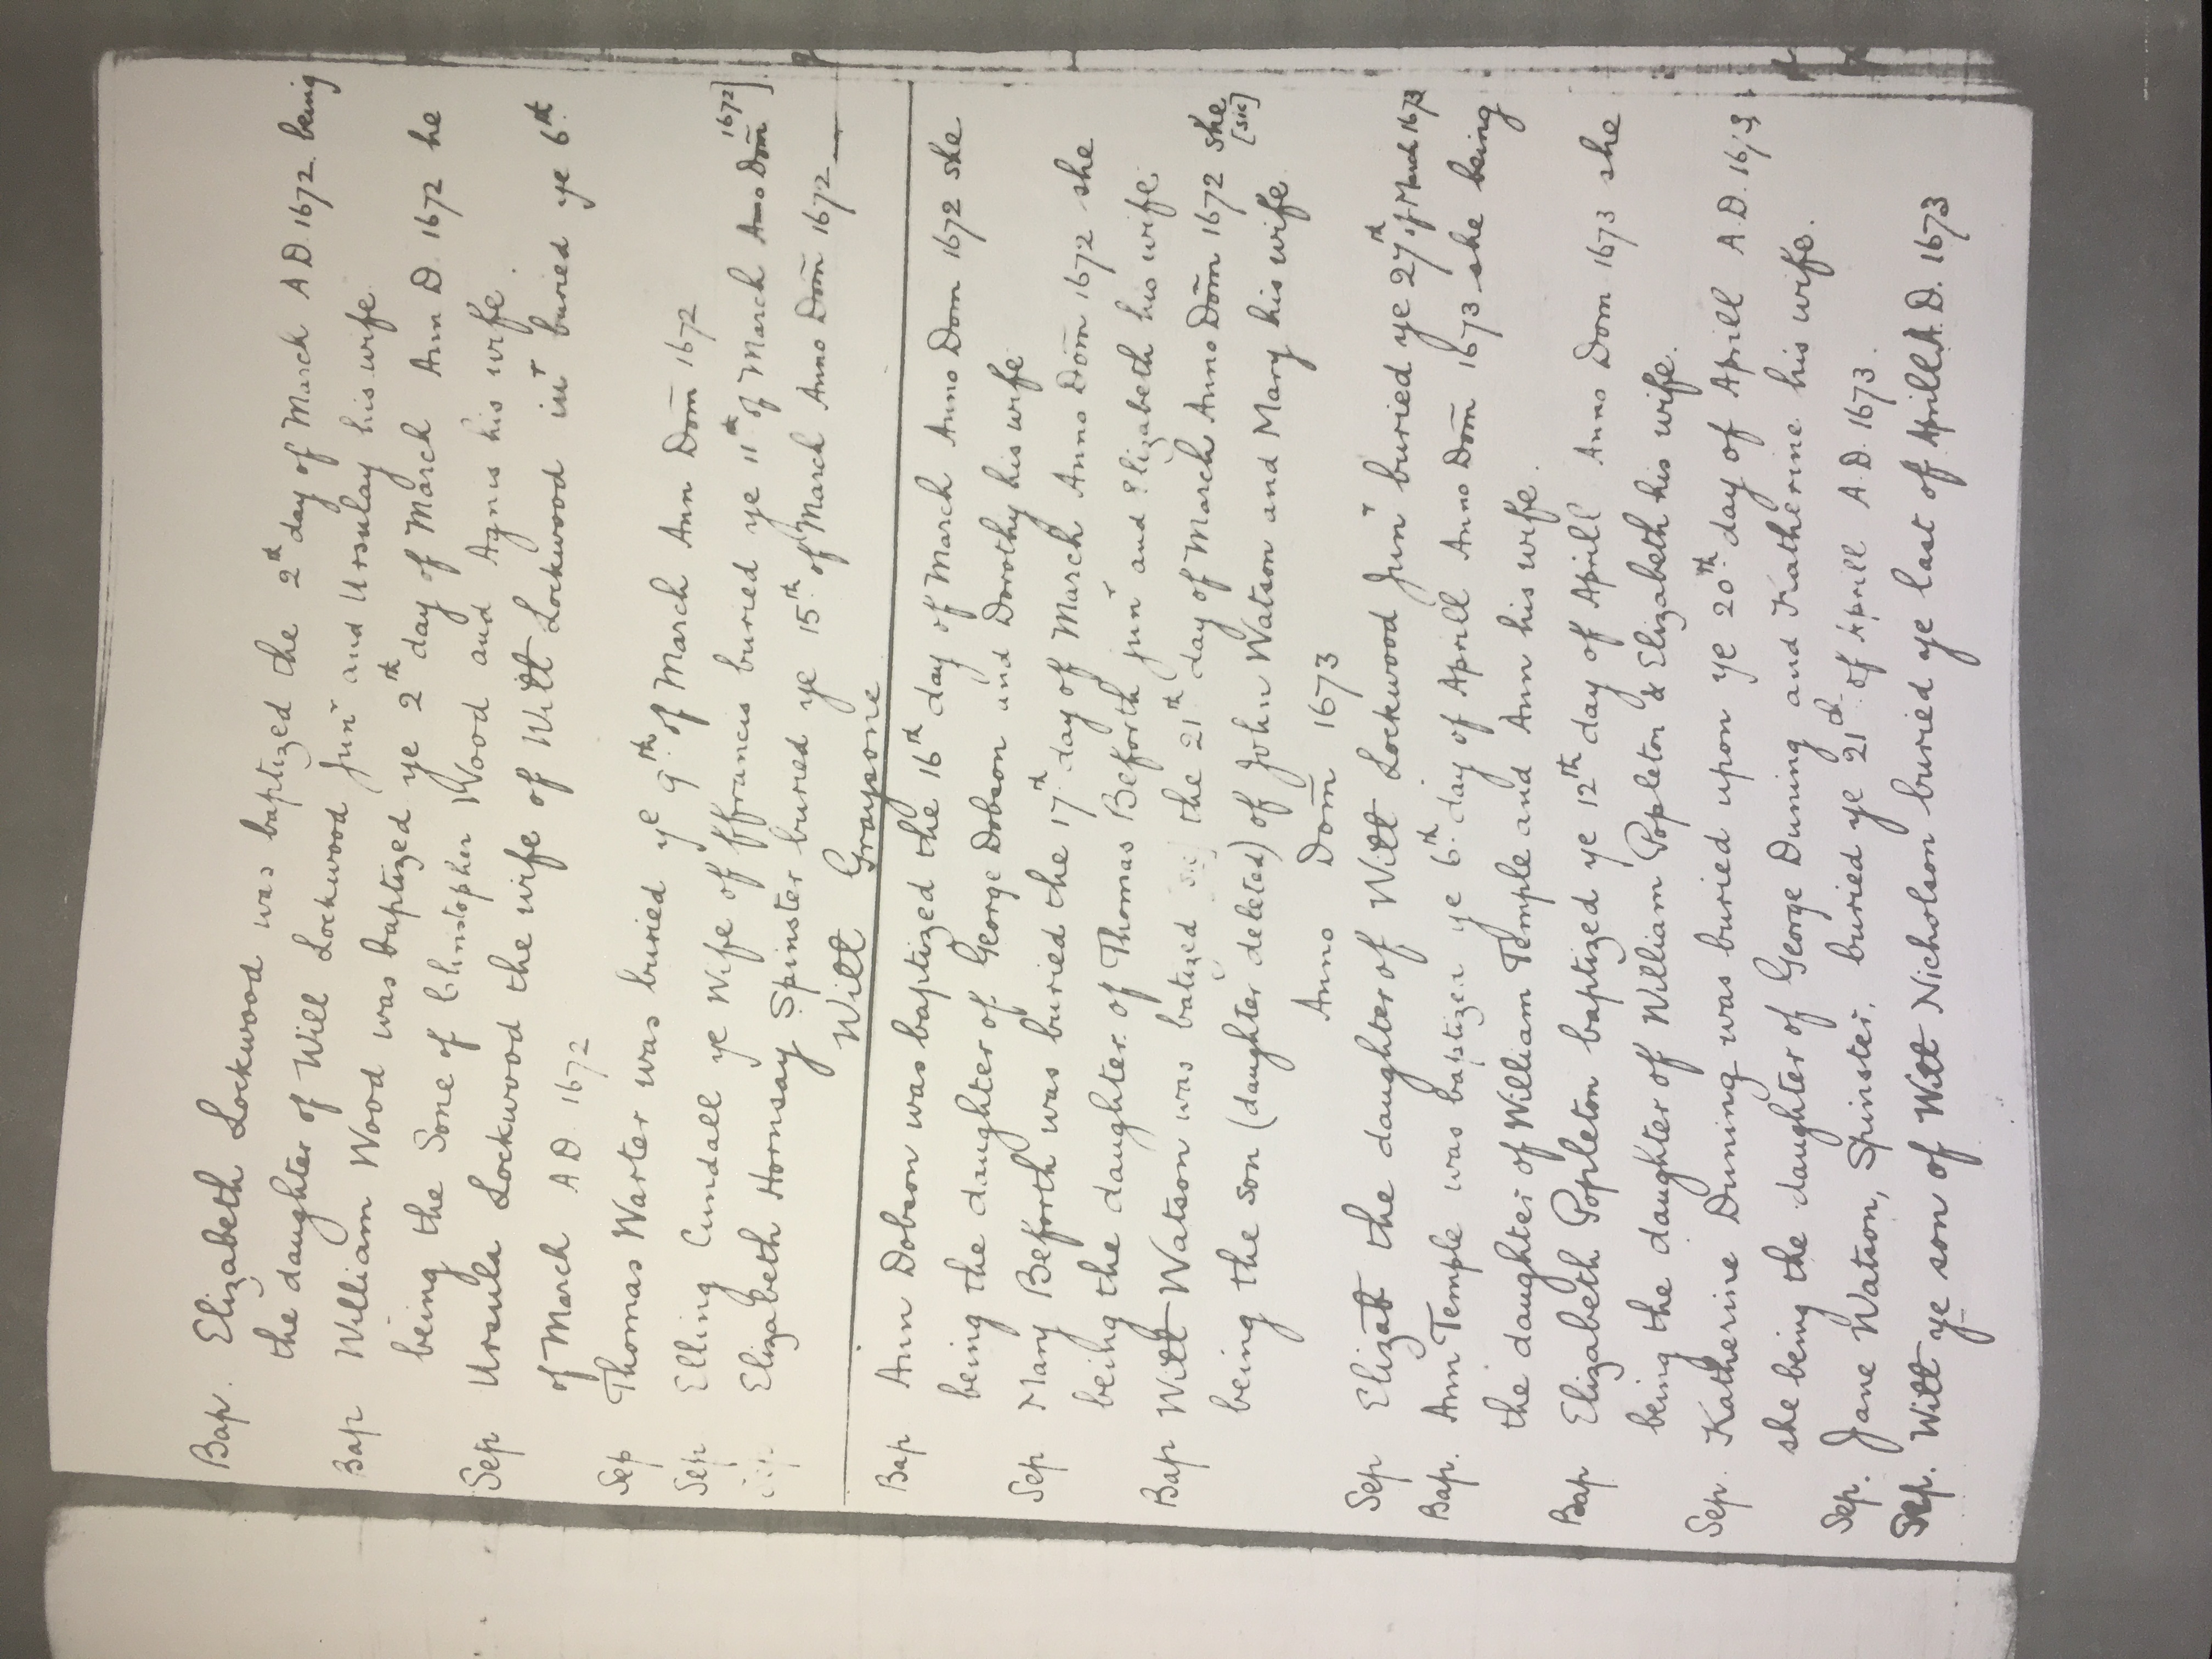 Bap. Elizabeth Lockwood was baptized the 2th day of March A D. 1672 being
the daughter of Will Lockwood Junr and Ursulay his wife.
Bap William Wood was baptized ye 2th day of March Ann D. 1672 he
being the Sone of Christopher Wood and Agnis his wife.
Sep Ursula Lockwood the wife of Willt Lockwood iunr buried ye 6th
of March A D. 1672
Sep Thomas Warter was buried ye 9th of March Ann Dom 1672
Sep Elling Cundall ye Wife of ffrancis buried ye 11th of March Anno Dom 1672]
Elizabeth Hornsay Spinster buried ye 15th of March Anno Dom 1672
Willt Graysone
Bap Ann Dobson was baptized the 16th day of March Anno Dom 1672 she
being the daughter of George Dobson and Dorothy his wife
Sep Mary Beforth was buried the 17th day of March Anno Dom 1672 she
being the daughter of Thomas Beforth junr and Elizabeth his wife.
Bap Willt Watson was batized sic] the 21th day of March Anno Dom 1672 she
[sic]
being the son (daughter deleted) of John Watson and Mary his wife.
Anno Dom 1673
Sep Elizabt the daughter of Willt Lockwood Junr buried ye 27th of March 1673
Bap. Ann Temple was baptizen ye 6th day of Aprill Anno Dom 1673 she being
the daughter of William Temple and Ann his wife.
Bap Elizabeth Popleton baptized ye 12th day of Aprill Anno Dom 1673 she
being the daughter of William Popleton & Elizabeth his wife.
Sep. Katherine Duning was buried upon ye 20th day of Aprill A.D. 1673
she being the daughter of George Duning and Katherine his wife.
Sep. Jane Watson, Spinster, buried ye 21th of Aprill A.D. 1673.
Sep. Willt ye son of Willt Nicholson buried ye last of Aprill A.D. 1673